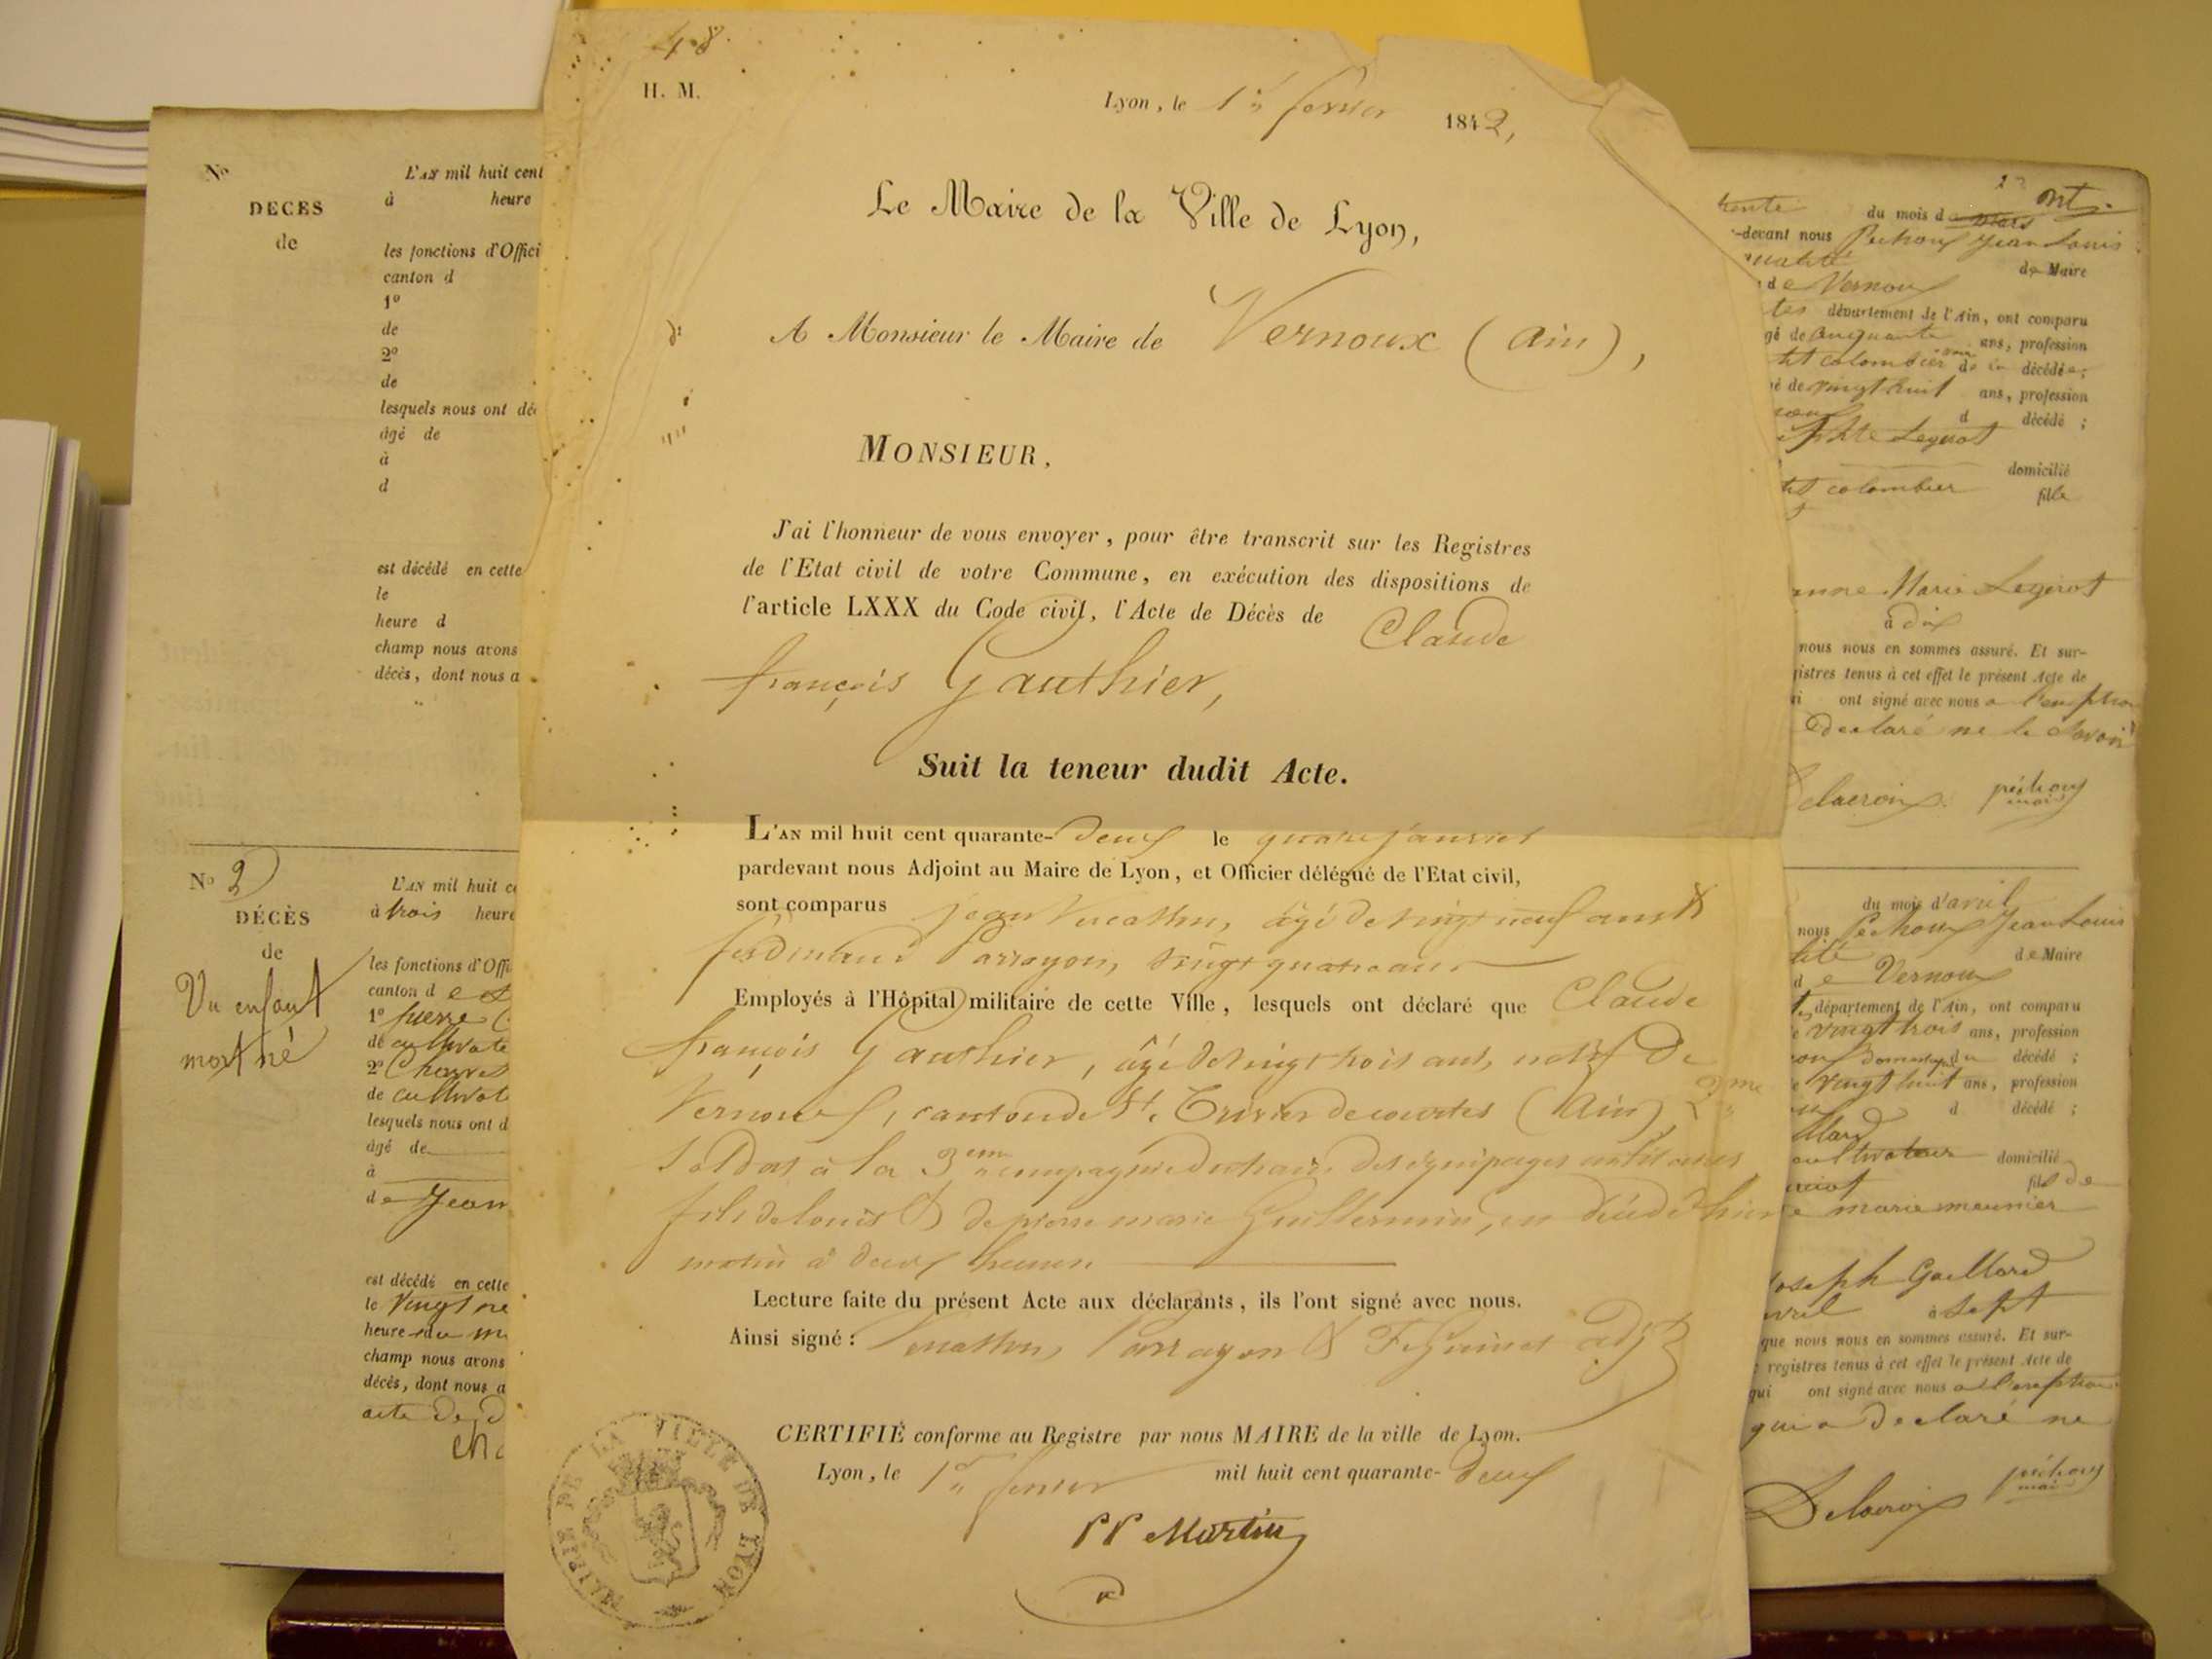 48
H. M.
Lyon, le 1er fevrier 1842,
Le Maire de la Ville de Lyon,
A Monsieur le Maire de Vernoux (Ain),
MONSIEUR,
J'ai l'honneur de vous envoyer, pour être transcrit sur les Registres
de l'Etat civil de votre Commune, en exécution des dispositions de
l'article LXXX du Code civil, l'Acte de Décès de Claude
françois Gauthier,
Suit la teneur dudit Acte.
L'AN mil huit cent quarante-deux le quatre janvier
pardevant nous Adjoint au Maire de Lyon, et Officier délégué de l'Etat civil,
sont comparus jean âgé de vingt neuf ans &
ferdinand Parrayon, vingt quatre ans
Employés à l'Hôpital militaire de cette Ville, lesquels ont déclaré que Claude
françois Gauthier, âgé de vingt trois ans, natif de
Vernoux, canton de St. Trivier de courtes (Ain),
soldat à la 3eme compagnie des équipages militaires
fils de louis & de pierre marie Guillermin, est décédé hier
matin à deux heures
Lecture faite du présent Acte aux déclarants, ils l'ont signé avec nous.
Ainsi signé: Parrayon & adjt
CERTIFIÉ conforme au Registre par nous MAIRE de la ville de Lyon.
Lyon, le 1er fevrier mil huit cent quarante-deux
Martin
MAIRIE DE LA VILLE DE LYON
No
DECES
de
L'AN mil huit cent
à heure
les fonctions d'Offici
canton d
1º
de
2º
de
lesquels nous ont dé
âgé de
à
d
est décédé en cette
le
heure d
champ nous avons
décès, dont nous a
No 2
DÉCÈS
de
Un enfant
mort né
L'AN mil huit c
à trois heure
les fonctions d'Offi
canton de
1º pierre
de cultivate
2º
de cultivat
lesquels nous ont d
âgé de
à
de Jean
est décédé en cette
le vingt ne
heure du m
champ nous avons
décès, dont nous a
acte de d
trente du mois de mars
-devant nous Pechoux Jean Louis
de Maire
de Vernoux
département de l'Ain, ont comparu
gé de cinquante ans, profession
colombier de la décédée;
é de vingt huit ans, profession
d décédé;
Legerot
domicilié
colombier fille
anne Marie Legerot
à dix
nous nous en sommes assuré. Et sur-
gistres tenus à cet effet le présent Acte de
ont signé avec nous a l'exception
declaré ne le savoir
Delacroix péchoux
maire
du mois d'avril
nous Pechoux Jean Louis
lité de Maire
de Vernoux
département de l'Ain, ont comparu
e vingt trois ans, profession
domestique du décédé;
e vingt huit ans, profession
d décédé;
cultivateur domicilié
fils de
e marie meunier
Joseph Gaillard
avril à sept
que nous nous en sommes assuré. Et sur-
registres tenus à cet effet le présent Acte de
qui ont signé avec nous a l'exception
qui a declaré ne
Delacroix péchoux
maire